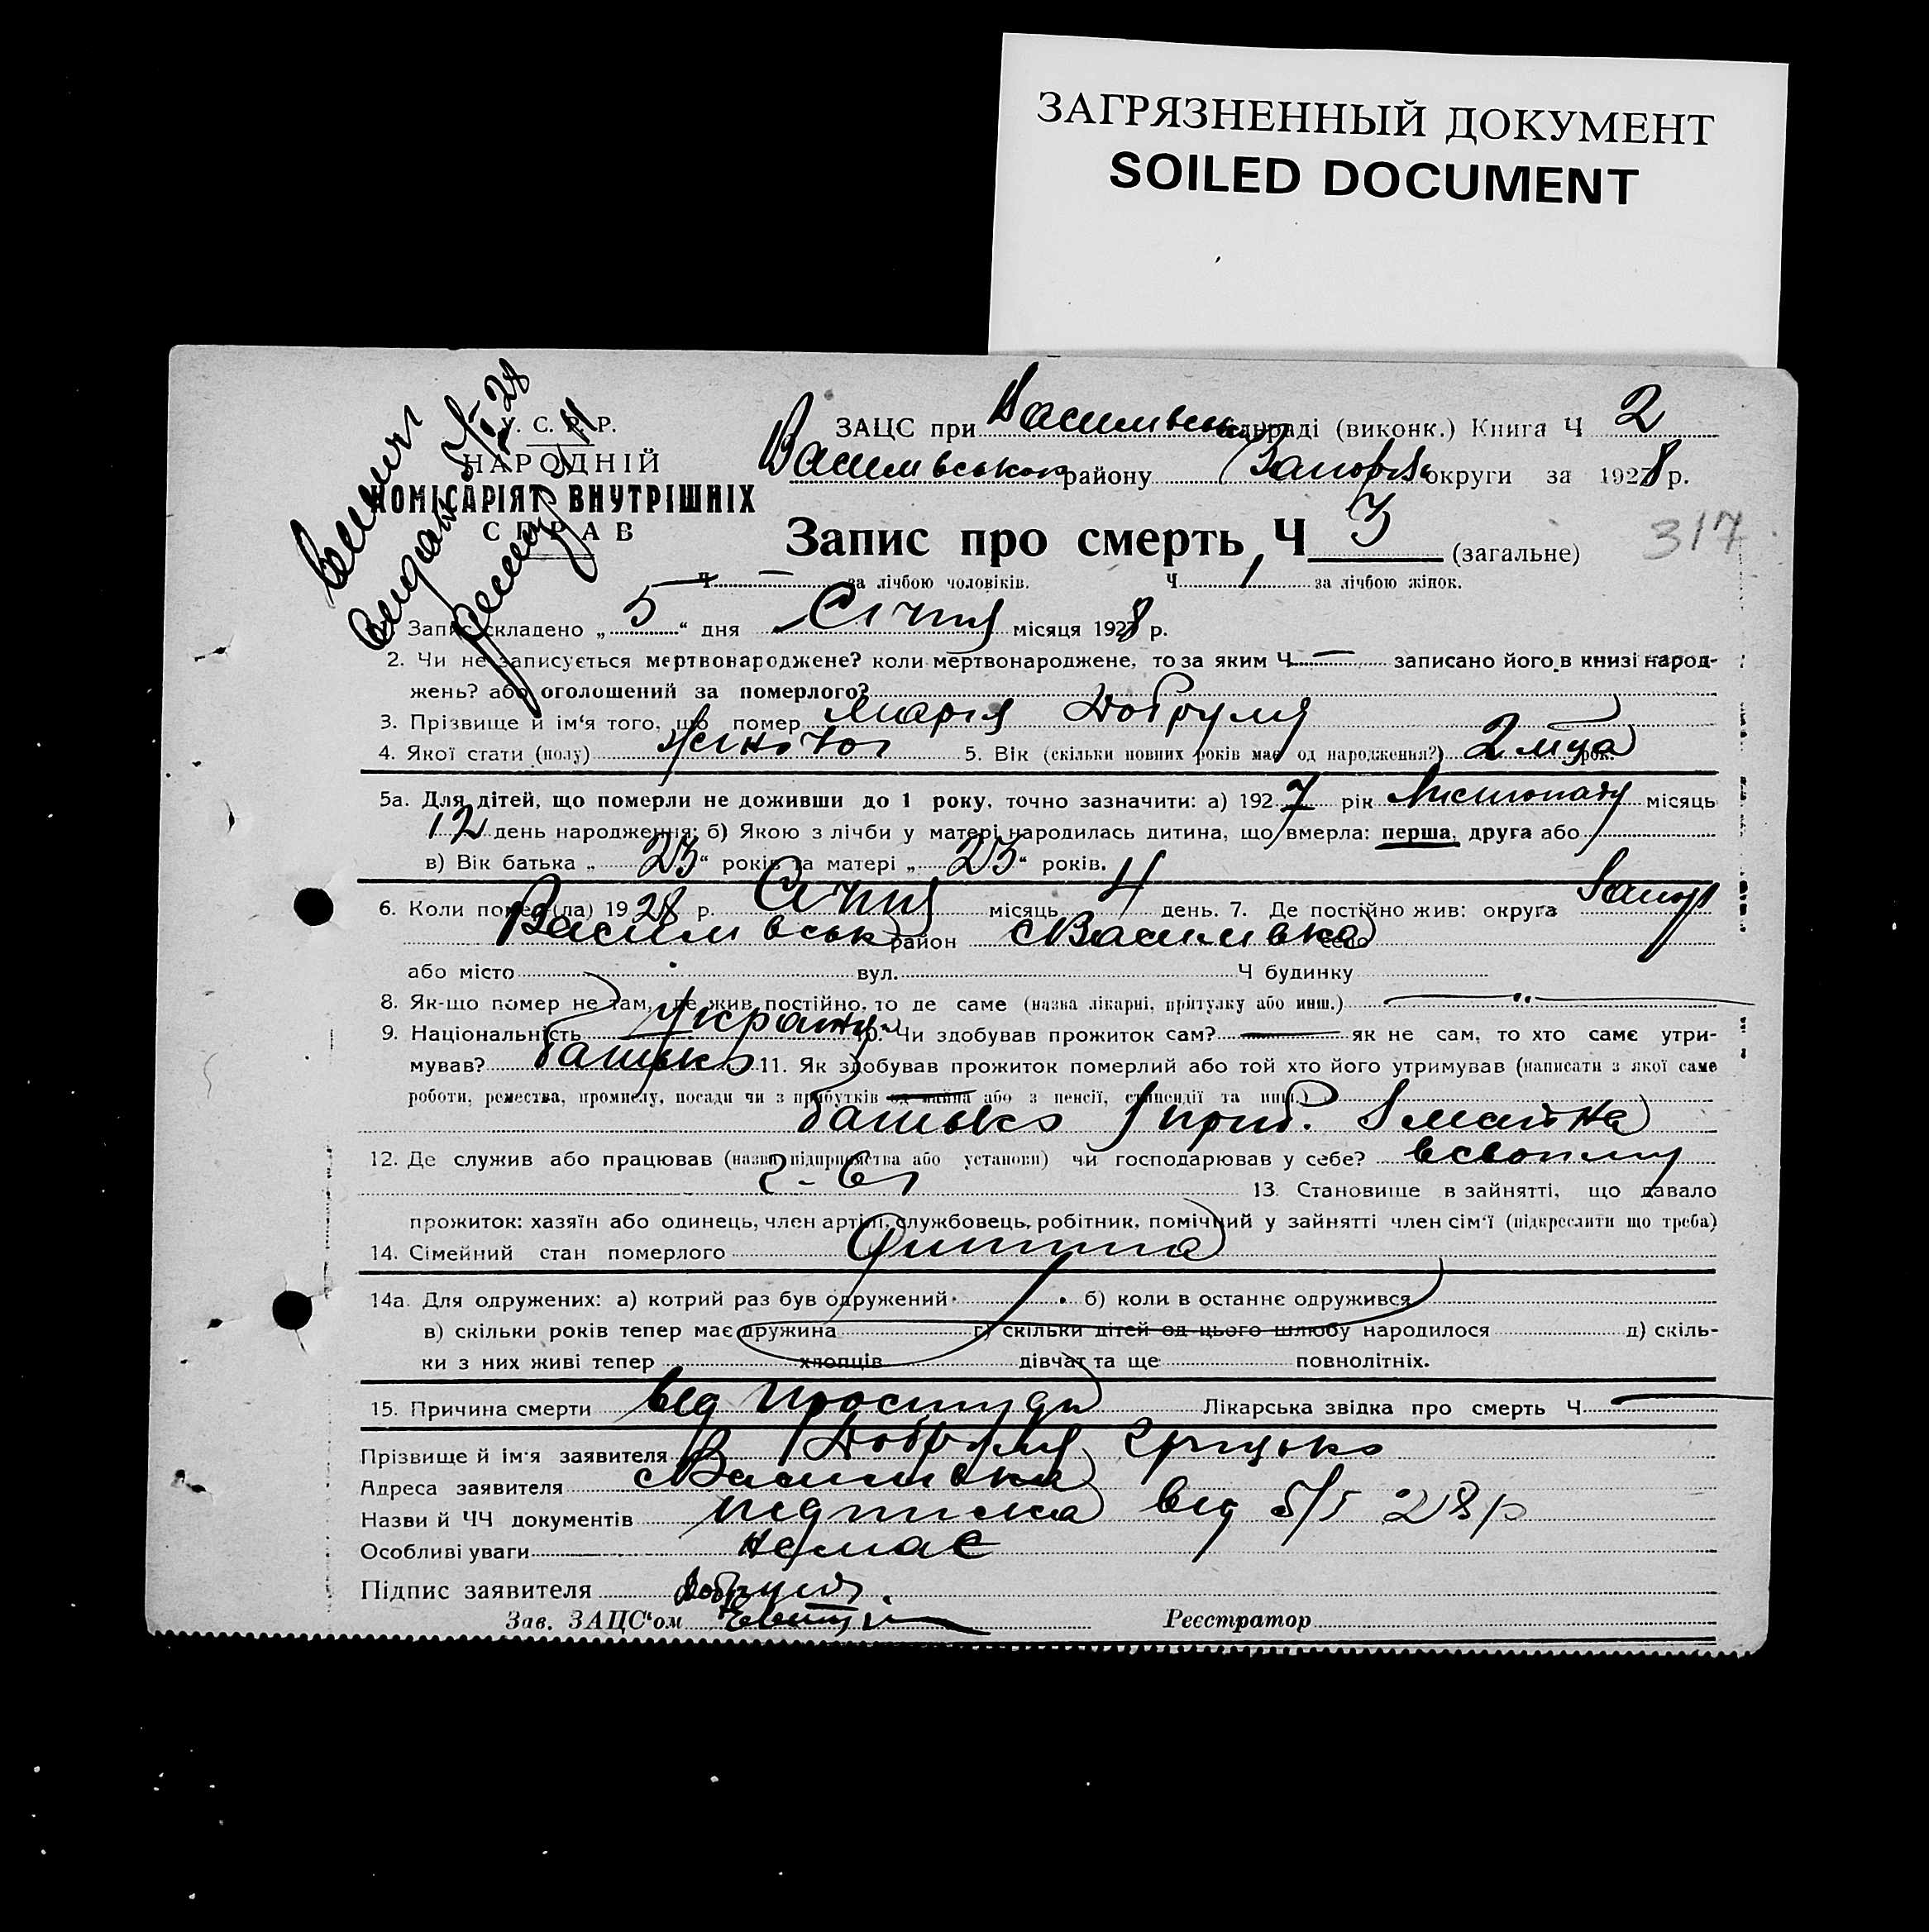 ЗАГРЯЗНЕННЫЙ ДОКУМЕНТ
SOILED DOCUMENT
У. С. Р. Р.
НАРОДНІЙ
КОМІСАРІЯТ ВНУТРІШНІХ
СПРАВ
ЗАЦС при Василівськ раді (виконк.) Книга Ч 2
Василівського району Запоріз округи за 1928 р.
Запис про смерть, Ч 3 (загальне)
317
Ч — за лічбою чоловіків. Ч 1 за лічбою жінок.
Запис складено „5“ дня Січня місяця 1928 р.
2. Чи не записується мертвонароджене? коли мертвонароджене, то за яким Ч — записано його в книзі народ-
жень? або оголошений за померлого?
3. Прізвище й ім‘я того, що помер Марія Добруля
4. Якої статі (полу) жіночої 5. Вік (скільки повних років має од народження?) 2 м-ця рок.
5а. Для дітей, що померли не доживши до 1 року, точно зазначити: а) 1927 рік Листопаду місяць
12 день народження; б) Якою з лічби у матері народилась дитина, що вмерла: перша, друга або
в) Вік батька „23“ років та матері „23“ років.
6. Коли помер (ла) 1928 р. Січня місяць 4 день. 7. Де постійно жив: округа Запор
Василівськ район с Василівка село
або місто вул. Ч будинку
8. Як-що помер не там, де жив постійно, то де саме (назва лікарні, притулку або инш.)
9. Національність Україн 10. Чи здобував прожиток сам? — як не сам, то хто саме утри-
мував? батько 11. Як здобував прожиток померлий або той хто його утримував (написати з якої саме
роботи, ремества, промислу, посади чи з прибутків од майна або з пенсії, стипендії та инш.)
батько з приб. з майна
12. Де служив або працював (назви підприємства або установи) чи господарював у себе? всвоєму
г-ві 13. Становище в зайнятті, що давало
прожиток: хазяїн або одинець, член артілі, службовець, робітник, помічний у зайнятті член сім‘ї (підкреслити що треба)
14. Сімейний стан померлого Дитина
14а. Для одружених: а) котрий раз був одружений б) коли в останнє одружився
в) скільки років тепер має дружина г) скільки дітей од цього шлюбу народилося д) скіль-
ки з них живі тепер хлопців дівчат та ще повнолітніх.
15. Причина смерти від простуди Лікарська звідка про смерть Ч —
Прізвище й ім‘я заявителя Добруля Грицько
Адреса заявителя с Василівка
Назви й ЧЧ документів підписка від 5/I 28 р
Особливі уваги немає
Підпис заявителя Добруля
Зав. ЗАЦС‘ом Реєстратор